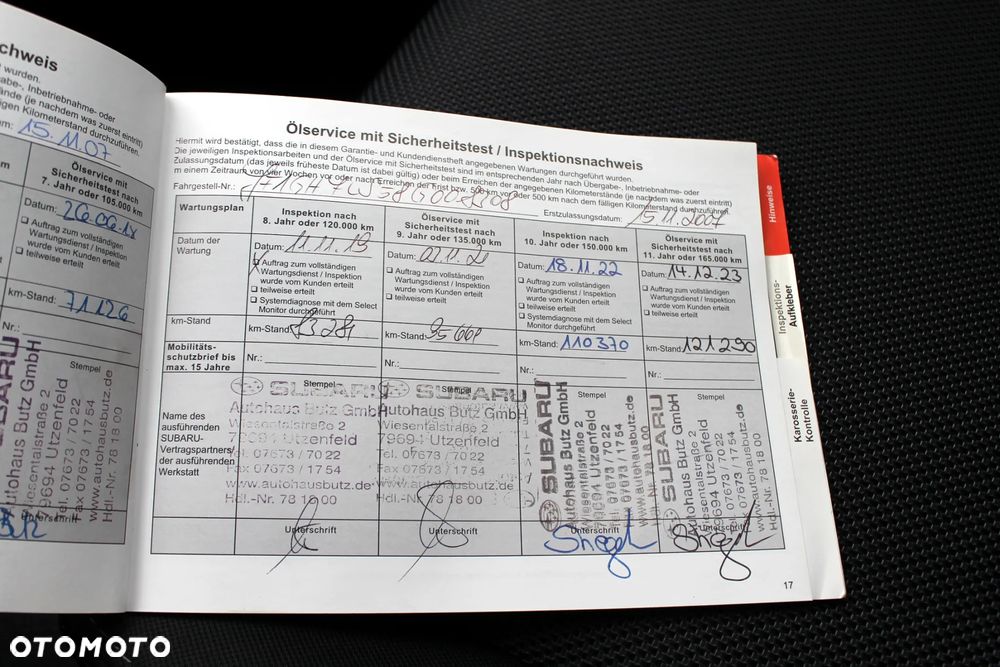 chweis
wurden.
abe-, Inbetriebnahme- oder
tände (je nachdem was zuerst eintritt)
igen Kilometerstand durchzuführen.
15.11.07
Ölservice mit
Sicherheitstest nach
7. Jahr oder 105.000 km
Datum: 26.06.17
Auftrag zum vollständigen
Wartungsdienst / Inspektion
wurde vom Kunden erteilt
teilweise erteilt
km-Stand: 71126
Nr.:
Stempel
SUBARU
Autohaus Butz GmbH
Wiesentalstraße 2
79694 Utzenfeld
Tel. 07673 / 70 22
Fax 07673 / 17 54
www.autohausbutz.de
Hdl.-Nr. 78 18 00
Unterschrift
Ölservice mit Sicherheitstest / Inspektionsnachweis
Hiermit wird bestätigt, dass die in diesem Garantie- und Kundendienstheft angegebenen Wartungen durchgeführt wurden.
Die jeweiligen Inspektionsarbeiten und der Ölservice mit Sicherheitstest sind im entsprechenden Jahr nach Übergabe-, Inbetriebnahme- oder
Zulassungsdatum (das jeweils früheste Datum ist dabei gültig) oder beim Erreichen der angegebenen Kilometerstände (je nachdem was zuerst eintritt)
m einem Zeitraum von vier Wochen vor oder nach Erreichen der Frist bzw. 500 km vor oder 500 km nach dem fälligen Kilometerstand durchzuführen.
Fahrgestell-Nr.:
Erstzulassungsdatum: 15.11.2007
Wartungsplan
Inspektion nach
8. Jahr oder 120.000 km
Ölservice mit
Sicherheitstest nach
9. Jahr oder 135.000 km
Inspektion nach
10. Jahr oder 150.000 km
Ölservice mit
Sicherheitstest nach
11. Jahr oder 165.000 km
Datum der
Wartung
Datum: 11.11.19
Auftrag zum vollständigen
Wartungsdienst / Inspektion
wurde vom Kunden erteilt
teilweise erteilt
Systemdiagnose mit dem Select
Monitor durchgeführt
Datum:
Auftrag zum vollständigen
Wartungsdienst / Inspektion
wurde vom Kunden erteilt
teilweise erteilt
Datum: 18.11.22
Auftrag zum vollständigen
Wartungsdienst / Inspektion
wurde vom Kunden erteilt
teilweise erteilt
Systemdiagnose mit dem Select
Monitor durchgeführt
Datum: 14.12.23
Auftrag zum vollständigen
Wartungsdienst / Inspektion
wurde vom Kunden erteilt
teilweise erteilt
km-Stand
km-Stand: 83281
km-Stand: 95661
km-Stand: 110370
km-Stand: 121290
Mobilitäts-
schutzbrief bis
max. 15 Jahre
Nr.:
Nr.:
Nr.:
Nr.:
Name des
ausführenden
SUBARU-
Vertragspartners/
der ausführenden
Werkstatt
Stempel
SUBARU
Autohaus Butz GmbH
Wiesentalstraße 2
79694 Utzenfeld
Tel. 07673 / 70 22
Fax 07673 / 17 54
www.autohausbutz.de
Hdl.-Nr. 78 18 00
Stempel
SUBARU
Autohaus Butz GmbH
Wiesentalstraße 2
79694 Utzenfeld
Tel. 07673 / 70 22
Fax 07673 / 17 54
www.autohausbutz.de
Hdl.-Nr. 78 18 00
Stempel
SUBARU
Autohaus Butz GmbH
Wiesentalstraße 2
79694 Utzenfeld
Tel. 07673 / 70 22
Fax 07673 / 17 54
www.autohausbutz.de
Hdl.-Nr. 78 18 00
Stempel
SUBARU
Autohaus Butz GmbH
Wiesentalstraße 2
79694 Utzenfeld
Tel. 07673 / 70 22
Fax 07673 / 17 54
www.autohausbutz.de
Hdl.-Nr. 78 18 00
Unterschrift
Unterschrift
Unterschrift
Unterschrift
17
Hinweise
Inspektions-
Aufkleber
Karosserie-
Kontrolle
OTOMOTO